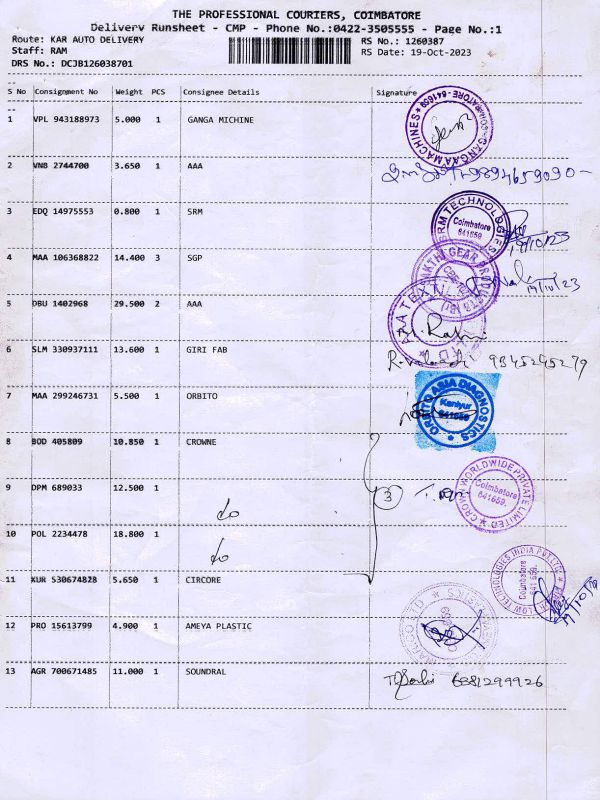 THE PROFESSIONAL COURIERS, COIMBATORE
Delivery Runsheet - CMP - Phone No.:0422-3505555 - Page No.:1
Route: KAR AUTO DELIVERY RS No.: 1260387
Staff: RAM RS Date: 19-Oct-2023
DRS No.: DCJB126038701
S No Consignment No Weight PCS Consignee Details Signature
1 VPL 943188973 5.000 1 GANGA MICHINE
GANGAA MACHINES COIMBATORE - 641659
2 VNB 2744700 3.650 1 AAA
9894659090
3 EDQ 14975553 0.800 1 SRM
SRM TECHNOLOGIES Coimbatore 641659.
19/10/23
4 MAA 106368822 14.400 3 SGP
SAKTHI GEAR PRODUCTS
19/10/23
5 DBU 1402968 29.500 2 AAA
6 SLM 330937111 13.600 1 GIRI FAB
9345245279
7 MAA 299246731 5.500 1 ORBITO
ORBITO ASIA DIAGNOSTICS Kaniyur 641659
8 BOD 405809 10.850 1 CROWNE
9 DPM 689033 12.500 1
do 3
CROWN WORLDWIDE PRIVATE LIMITED Coimbatore 641659.
10 POL 2234478 18.800 1
do
11 KUR 530674828 5.650 1 CIRCORE
FLOW TECHNOLOGIES INDIA PVT LTD Coimbatore 641 659.
19/10/23
12 PRO 15613799 4.900 1 AMEYA PLASTIC
13 AGR 700671485 11.000 1 SOUNDRAL
6381299926